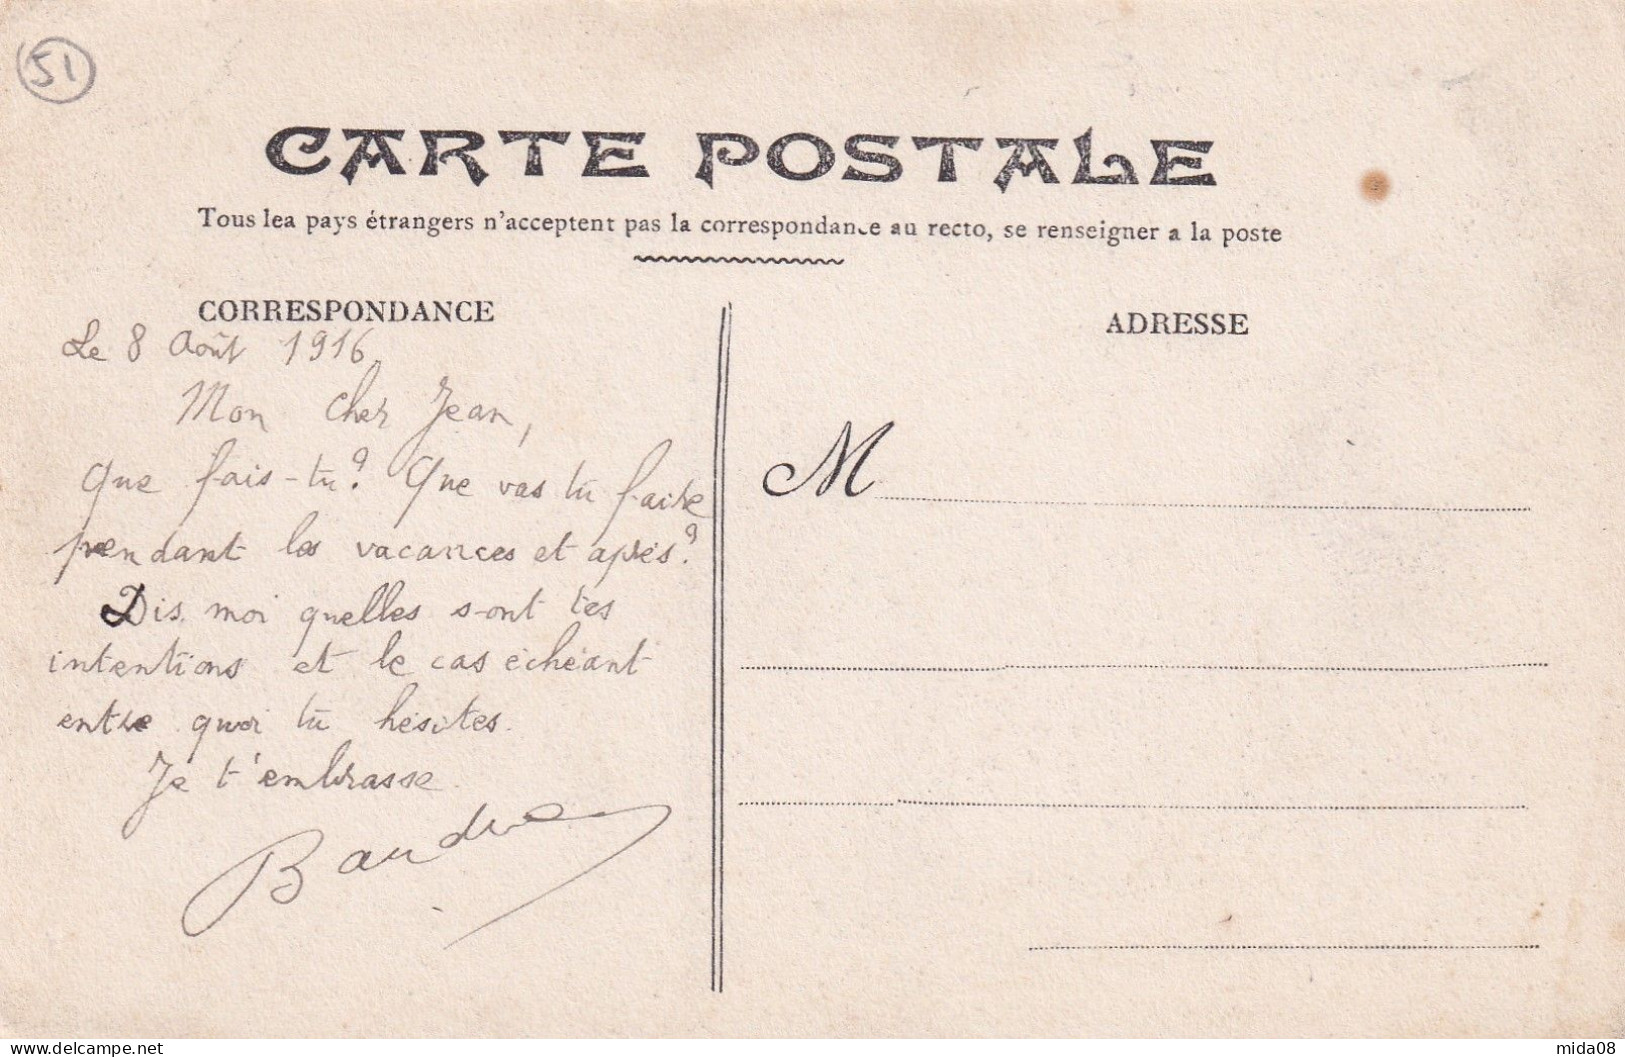 51
CARTE POSTALE
Tous lea pays étrangers n'acceptent pas la correspondance au recto, se renseigner a la poste
CORRESPONDANCE
Le 8 Août 1916
Mon cher Jean,
Que fais-tu? Que vas tu faire
pendant les vacances et après?
Dis moi quelles sont tes
intentions et le cas échéant
entre quoi tu hésites.
Je t'embrasse.
ADRESSE
M
delcampe.net
mida08